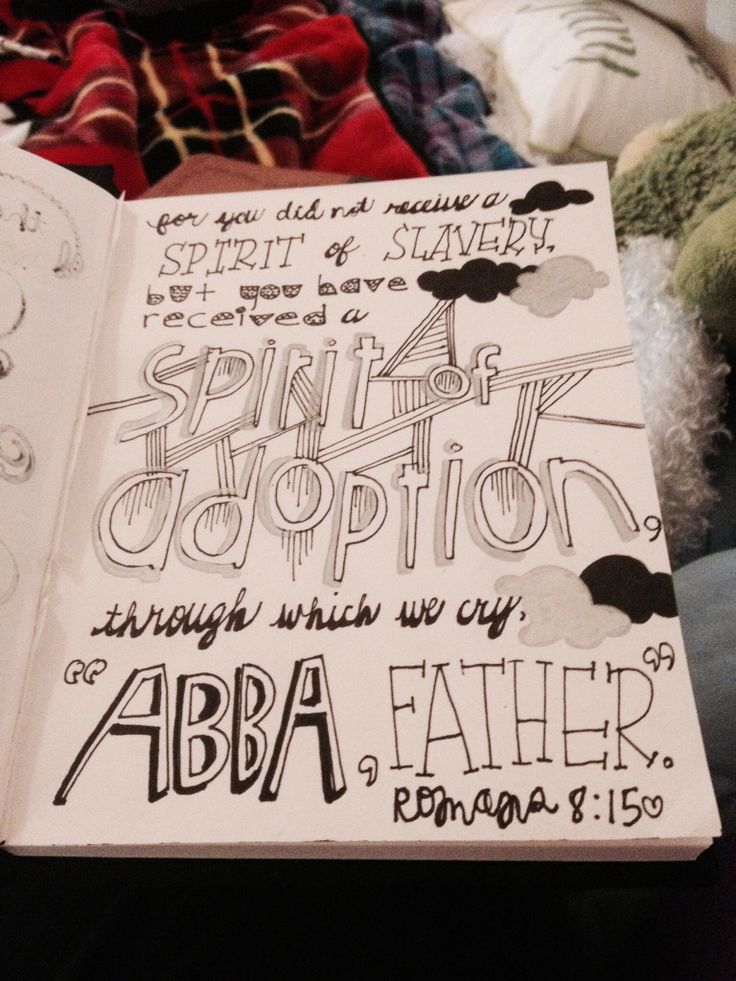 for you did not receive a
SPIRIT of SLAVERY,
but you have
received a
spirit of
adoption,
through which we cry,
“ABBA, FATHER”.
Romans 8:15♡